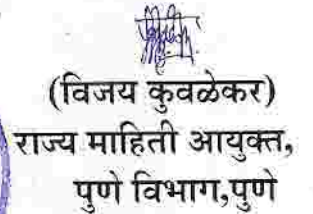 (विजय कुवळेकर)
राज्य माहिती आयुक्त,
पुणे विभाग,पुणे